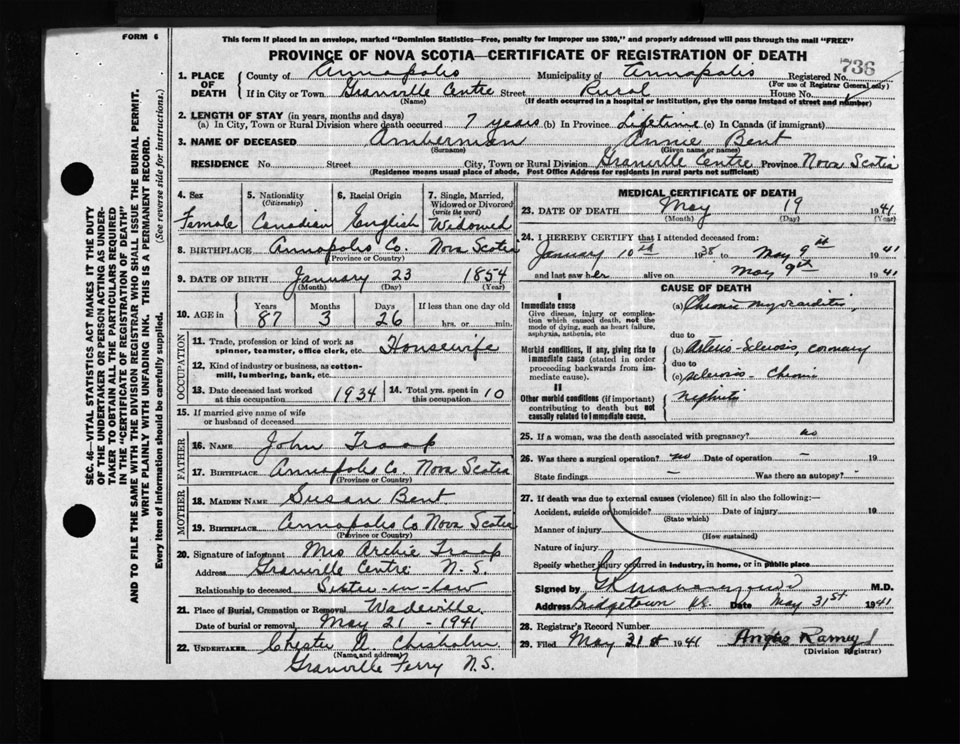 FORM 6
This form if placed in an envelope, marked "Dominion Statistics—Free, penalty for improper use $300," and properly addressed will pass through the mail "FREE"
PROVINCE OF NOVA SCOTIA—CERTIFICATE OF REGISTRATION OF DEATH
736
1. PLACE OF DEATH County of Annapolis Municipality of Annapolis Registered No.
(For use of Registrar General only)
If in City or Town Granville Centre Street Rural House No.
(Name) (If death occurred in a hospital or institution, give the name instead of street and number)
2. LENGTH OF STAY (in years, months and days)
(a) In City, Town or Rural Division where death occurred 7 years (b) In Province Lifetime (c) In Canada (if immigrant)
3. NAME OF DECEASED Amberman Annie Bent
(Surname) (Given name or names)
RESIDENCE No. Street City, Town or Rural Division Granville Centre Province Nova Scotia
(Residence means usual place of abode, Post Office Address for residents in rural parts not sufficient)
SEC. 46—VITAL STATISTICS ACT MAKES IT THE DUTY
OF THE UNDERTAKER OR PERSON ACTING AS UNDER-
TAKER TO OBTAIN ALL THE PARTICULARS REQUIRED
IN THE "CERTIFICATE OF REGISTRATION OF DEATH"
AND TO FILE THE SAME WITH THE DIVISION REGISTRAR WHO SHALL ISSUE THE BURIAL PERMIT.
WRITE PLAINLY WITH UNFADING INK. THIS IS A PERMANENT RECORD.
Every item of information should be carefully supplied. (See reverse side for instructions.)
4. Sex
Female
5. Nationality
(Citizenship)
Canadian
6. Racial Origin
English
7. Single, Married,
Widowed or Divorced
(write the word)
Widowed
8. BIRTHPLACE Annapolis Co. Nova Scotia
(Province or Country)
9. DATE OF BIRTH January 23 1854
(Month) (Day) (Year)
10. AGE in Years 87 Months 3 Days 26 If less than one day old
hrs. or min.
OCCUPATION
11. Trade, profession or kind of work as
spinner, teamster, office clerk, etc. Housewife
12. Kind of industry or business, as cotton-
mill, lumbering, bank, etc.
13. Date deceased last worked
at this occupation 1934
14. Total yrs. spent in
this occupation 10
15. If married give name of wife
or husband of deceased
FATHER
16. NAME John Troop
17. BIRTHPLACE Annapolis Co Nova Scotia
(Province or Country)
MOTHER
18. MAIDEN NAME Susan Bent
19. BIRTHPLACE Annapolis Co Nova Scotia
(Province or Country)
20. Signature of informant Mrs Archie Troop
Address Granville Centre N.S.
Relationship to deceased Sister-in-law
21. Place of Burial, Cremation or Removal Wadeville.
Date of burial or removal May 21 - 1941
22. UNDERTAKER Chester D. Chisholm
(Name and address)
Granville Ferry N.S.
MEDICAL CERTIFICATE OF DEATH
23. DATE OF DEATH May 19 1941
(Month) (Day) (Year)
24. I HEREBY CERTIFY that I attended deceased from:
January 10th 1938 to May 9th 1941
and last saw her alive on May 9th 1941
CAUSE OF DEATH
I
Immediate cause
Give disease, injury or complica-
tion which caused death, not the
mode of dying, such as heart failure,
asphyxia, asthenia, etc
(a) Chronic myocarditis
due to
Morbid conditions, if any, giving rise to
immediate cause (stated in order
proceeding backwards from im-
mediate cause).
(b) Arterio-Sclerosis, coronary
due to
(c) sclerosis - Chronic
II
Other morbid conditions (if important)
contributing to death but not
causally related to immediate cause.
Nephritis
25. If a woman, was the death associated with pregnancy? no
26. Was there a surgical operation? no Date of operation - 19
State findings - Was there an autopsy? -
27. If death was due to external causes (violence) fill in also the following:—
Accident, suicide or homicide? Date of injury 19
(State which)
Manner of injury
(How sustained)
Nature of injury
Specify whether injury occurred in industry, in home, or in public place
Signed by M.D.
Address Bridgetown N.S. Date May 31st 1941
28. Registrar's Record Number
29. Filed May 31st 1941 Angus Ramey
(Division Registrar)